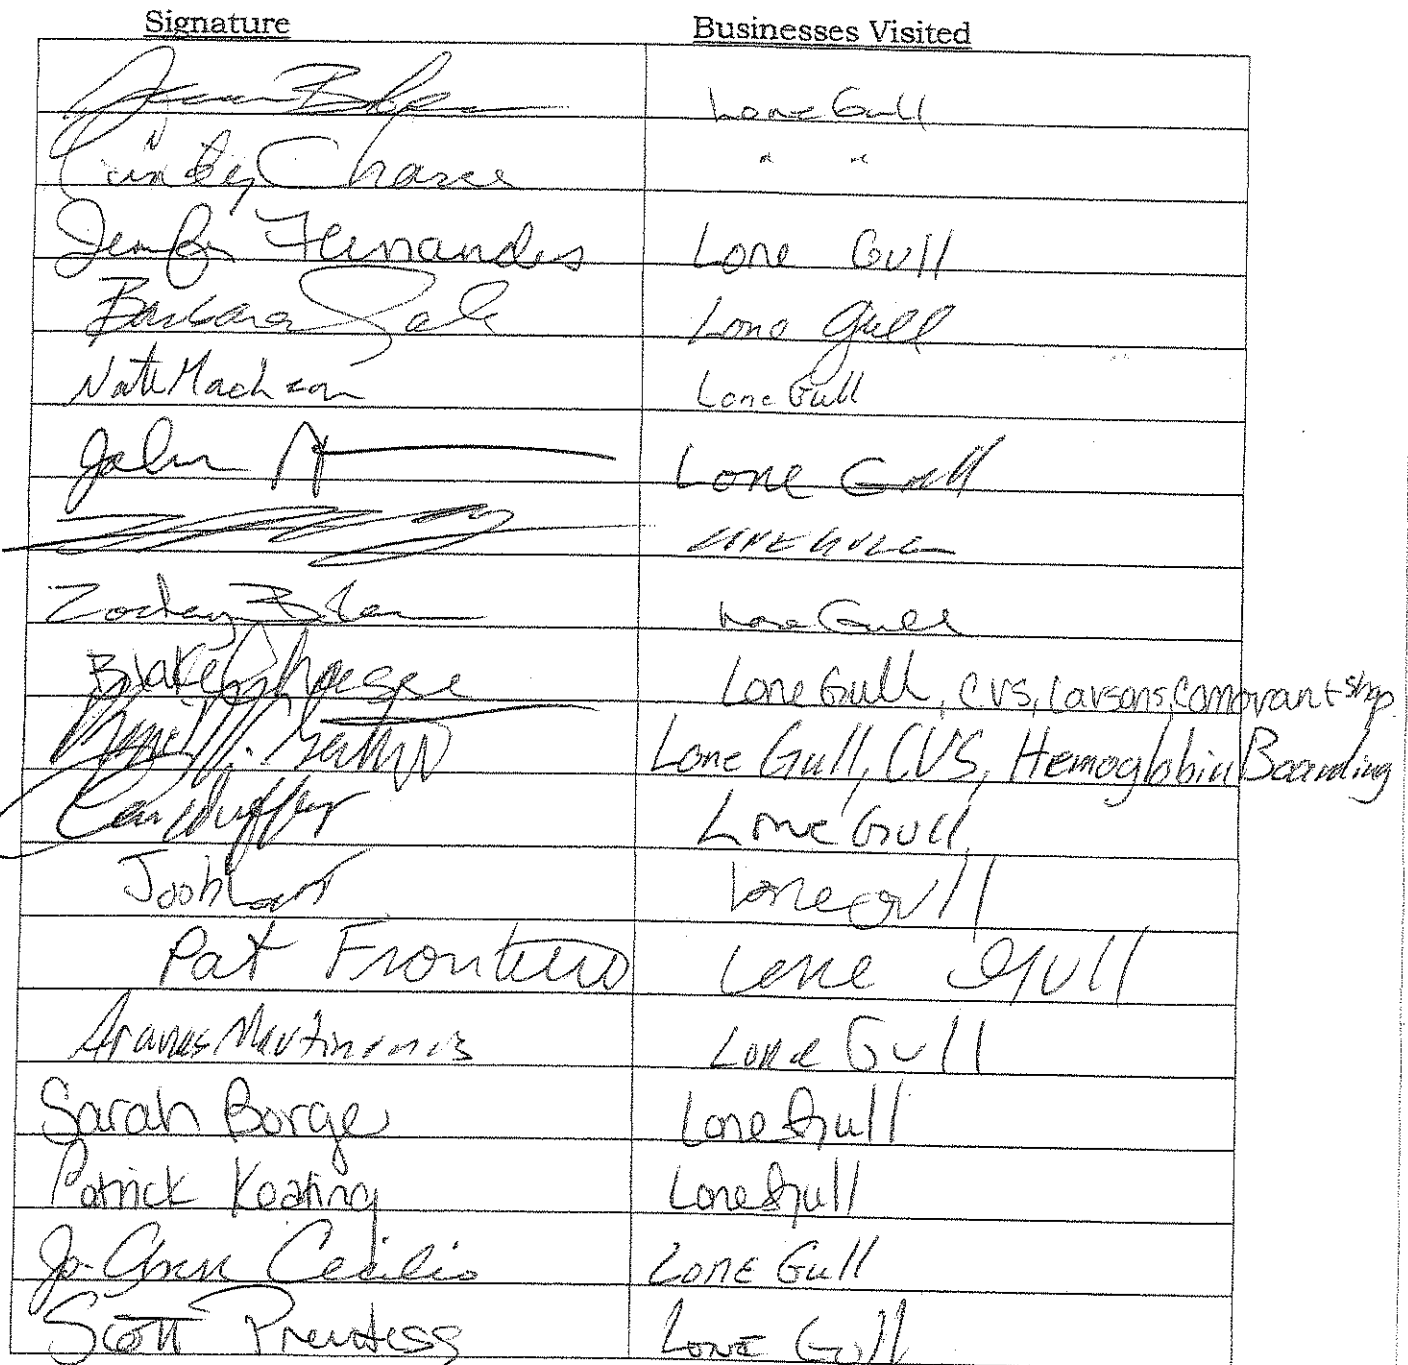 Signature Businesses Visited
Lone Gull
Cindy Chasse " "
Jennifer Fernandes Lone Gull
Barbara Lone Gull
Lone Gull
John Lone Gull
LONE GULL
Lone Gull
Blake Chasse Lone Gull, CVS, Larsons, Comorant shop
Lone Gull, CVS, Hemoglobin Boarding
Lone Gull
Lone Gull
Pat Frontiero Lone Gull
Lone Gull
Sarah Borge Lone Gull
Patrick Keating Lone Gull
Jo-Ann Cecilio Lone Gull
Scott Prentess Lone Gull